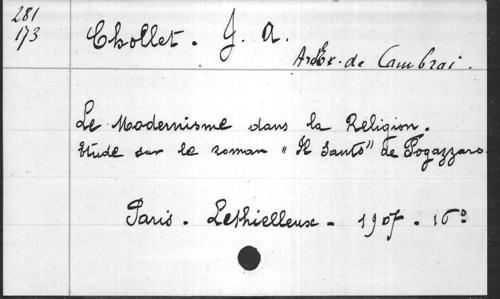 281
173
Chollet. J. A.
de Cambrai.
Le Modernisme dans la Religion.
Etude sur le roman "Il Santo" de Fogazzaro.
Paris. Lethielleux. 1907. 16°